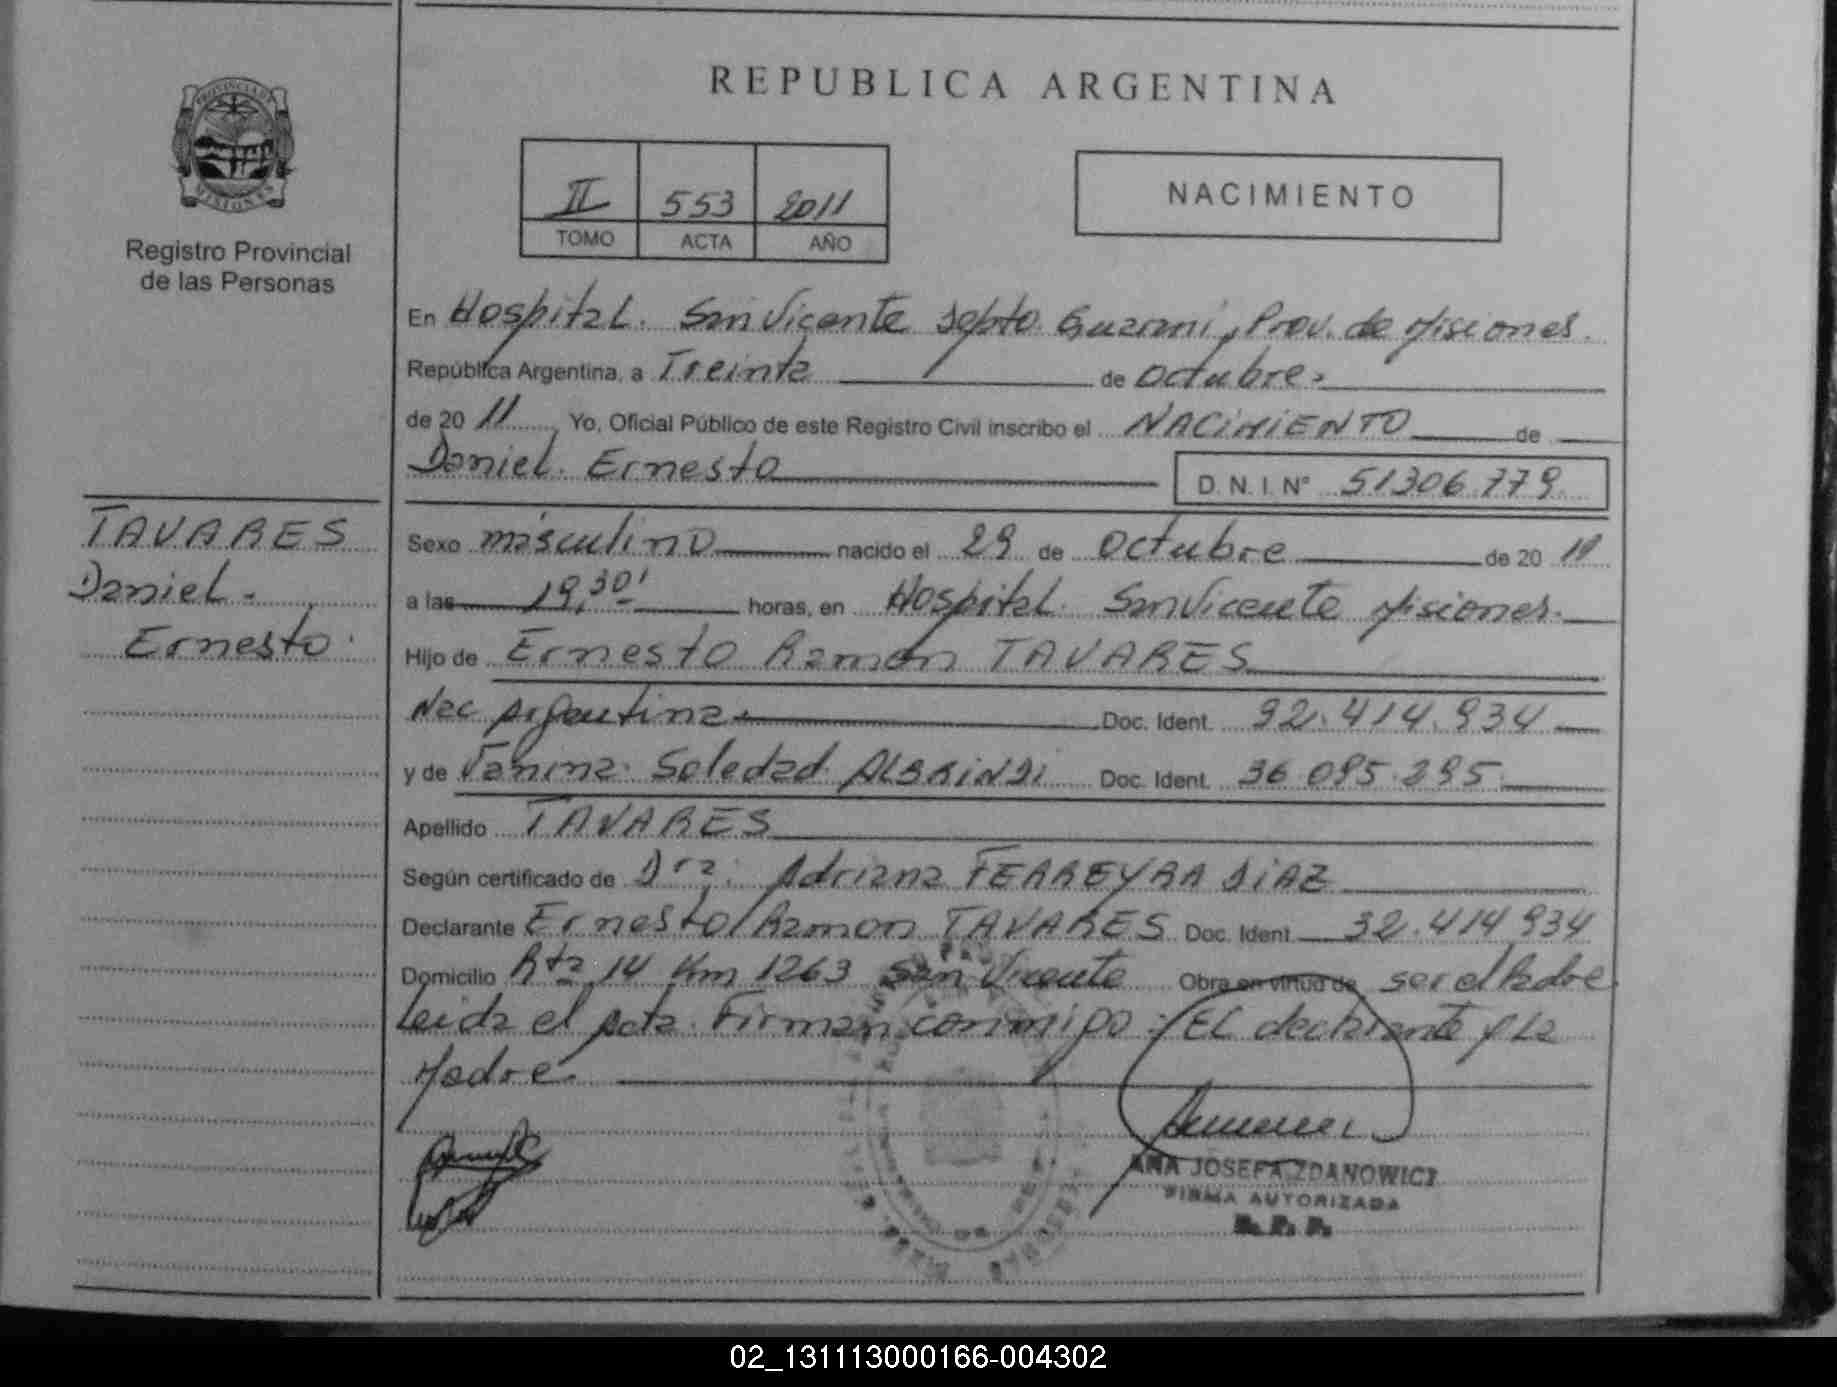 REPUBLICA ARGENTINA
PROVINCIA DE
MISIONES
Registro Provincial
de las Personas
II 553 2011
TOMO ACTA AÑO
NACIMIENTO
En Hospital. San Vicente Dpto. Guarani, Prov. de Misiones.
República Argentina, a Treinta de octubre.
de 20 11 Yo, Oficial Público de este Registro Civil inscribo el NACIMIENTO de
Daniel. Ernesto
D.N.I. N° 51306.779
TAVARES
Daniel.
Ernesto.
Sexo masculino nacido el 29 de octubre de 20 11
a las 19,30' horas, en Hospital. San Vicente Misiones.
Hijo de Ernesto Ramon TAVARES
Nac Argentina. Doc. Ident. 32.414.934
y de Soledad Doc. Ident. 36.095.295
Apellido TAVARES
Según certificado de Dra. Adriana FERREYRA DIAZ
Declarante Ernesto Ramon TAVARES Doc. Ident. 32.414934
Domicilio Rta 14 Km 1263 San Vicente Obra en virtud de ser el Padre
Leida el Acta. Firman conmigo: EL declarante y La
Madre.
ANA JOSEFA ZDANOWICZ
FIRMA AUTORIZADA
R. P. P.
02_131113000166-004302